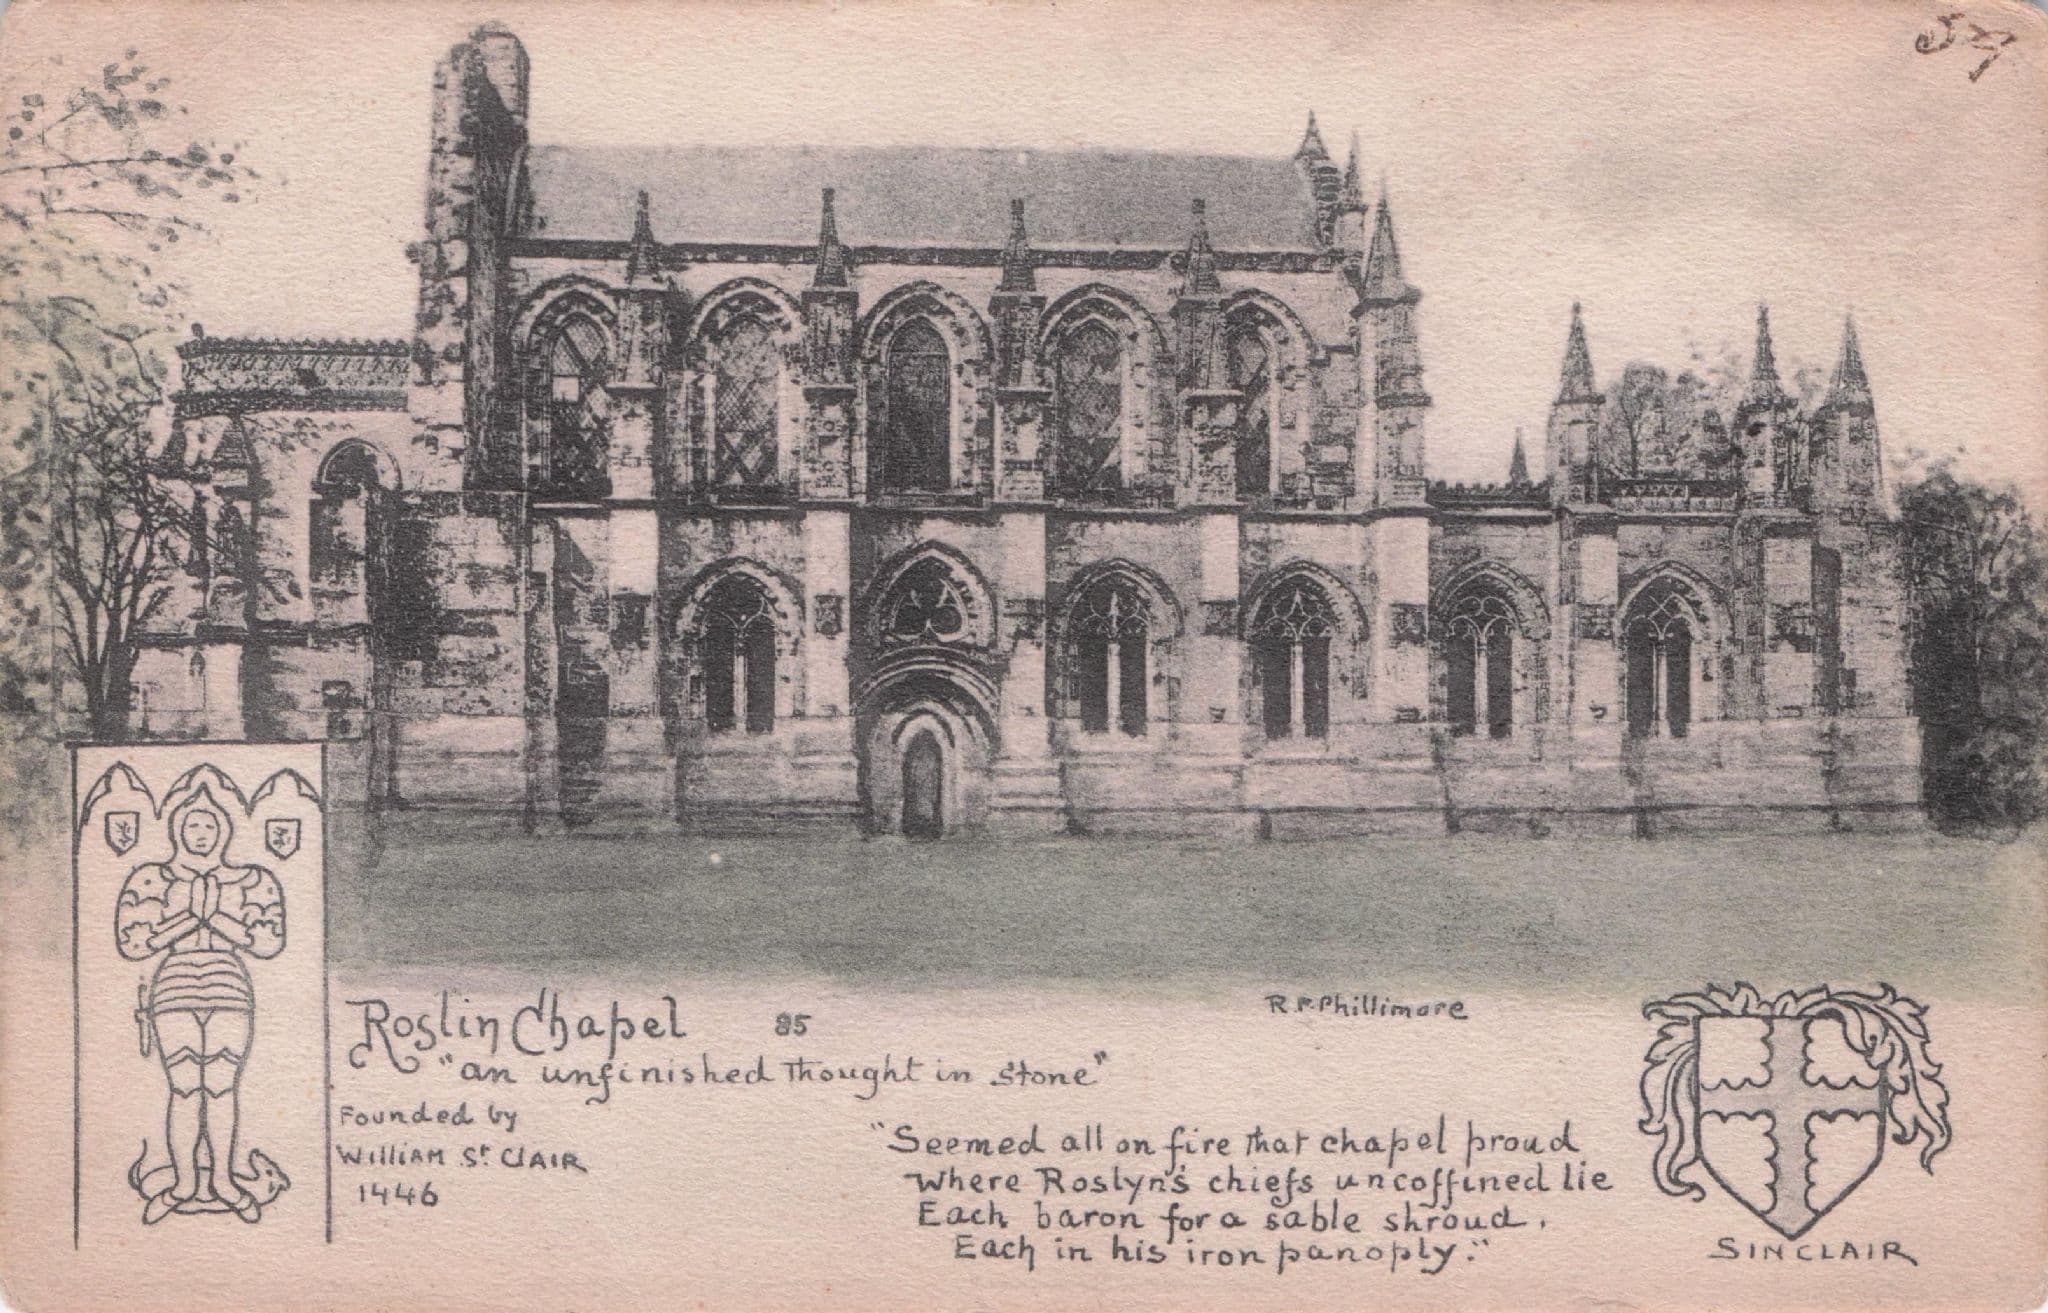 57
Roslin Chapel 85
"an unfinished Thought in Stone"
Founded by
William St Clair
1446
R.P. Phillimore
"Seemed all on fire that chapel proud
Where Roslyn's chiefs uncoffined lie
Each baron for a sable shroud,
Each in his iron panoply."
SINCLAIR